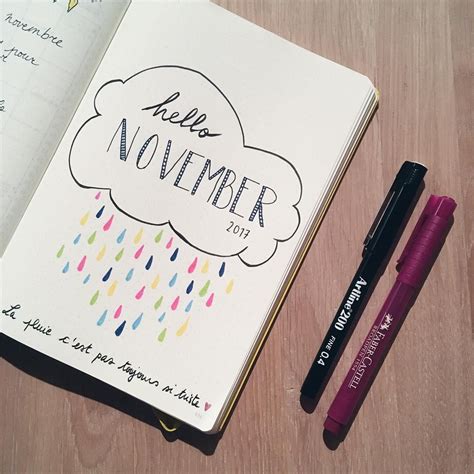 novembre
pour
hello
NOVEMBER
2017
La pluie c'est pas toujours si triste
Artline 200
FINE 0.4
FABER-CASTELL